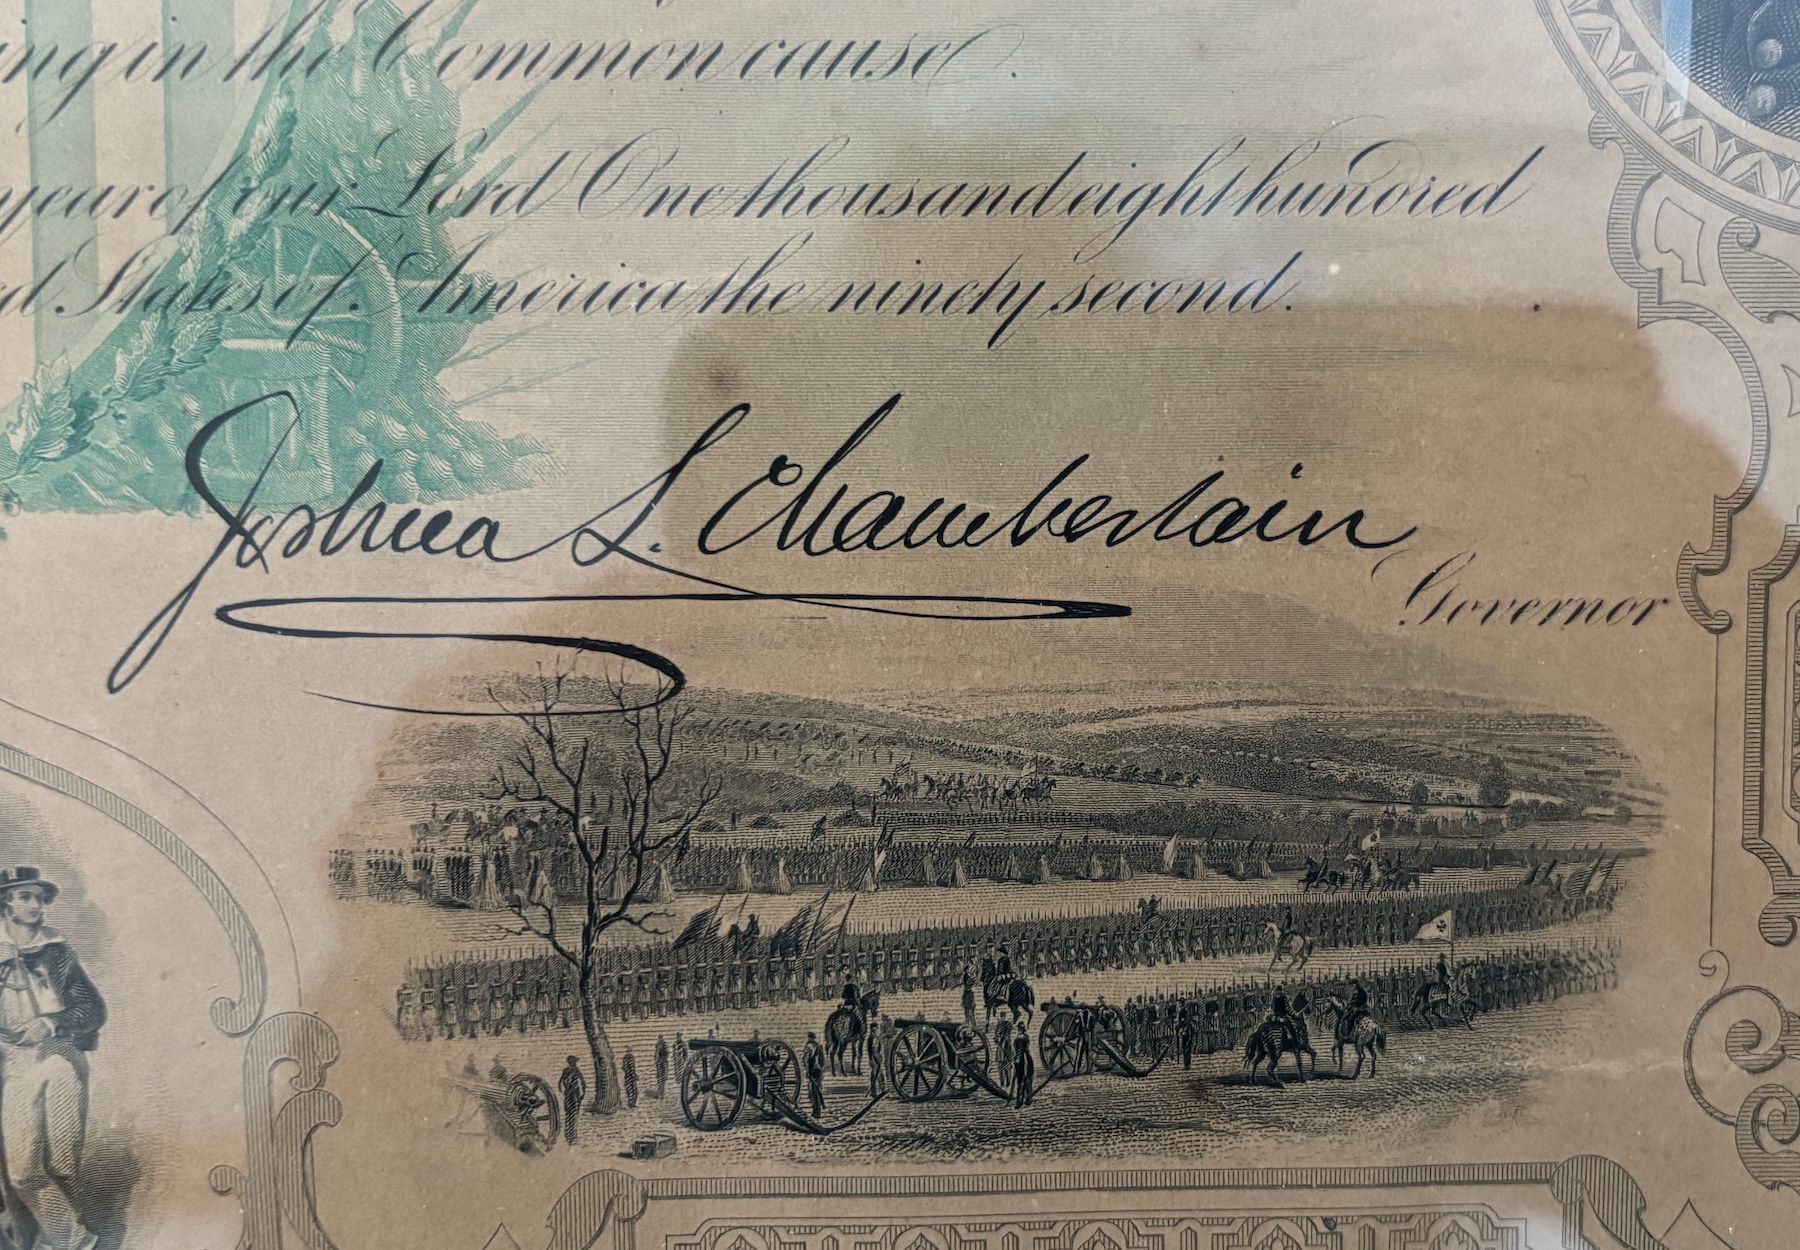 ing in the Common cause.
year of our Lord One thousand eight hundred
d States of America the ninety second.
Joshua L. Chamberlain
Governor